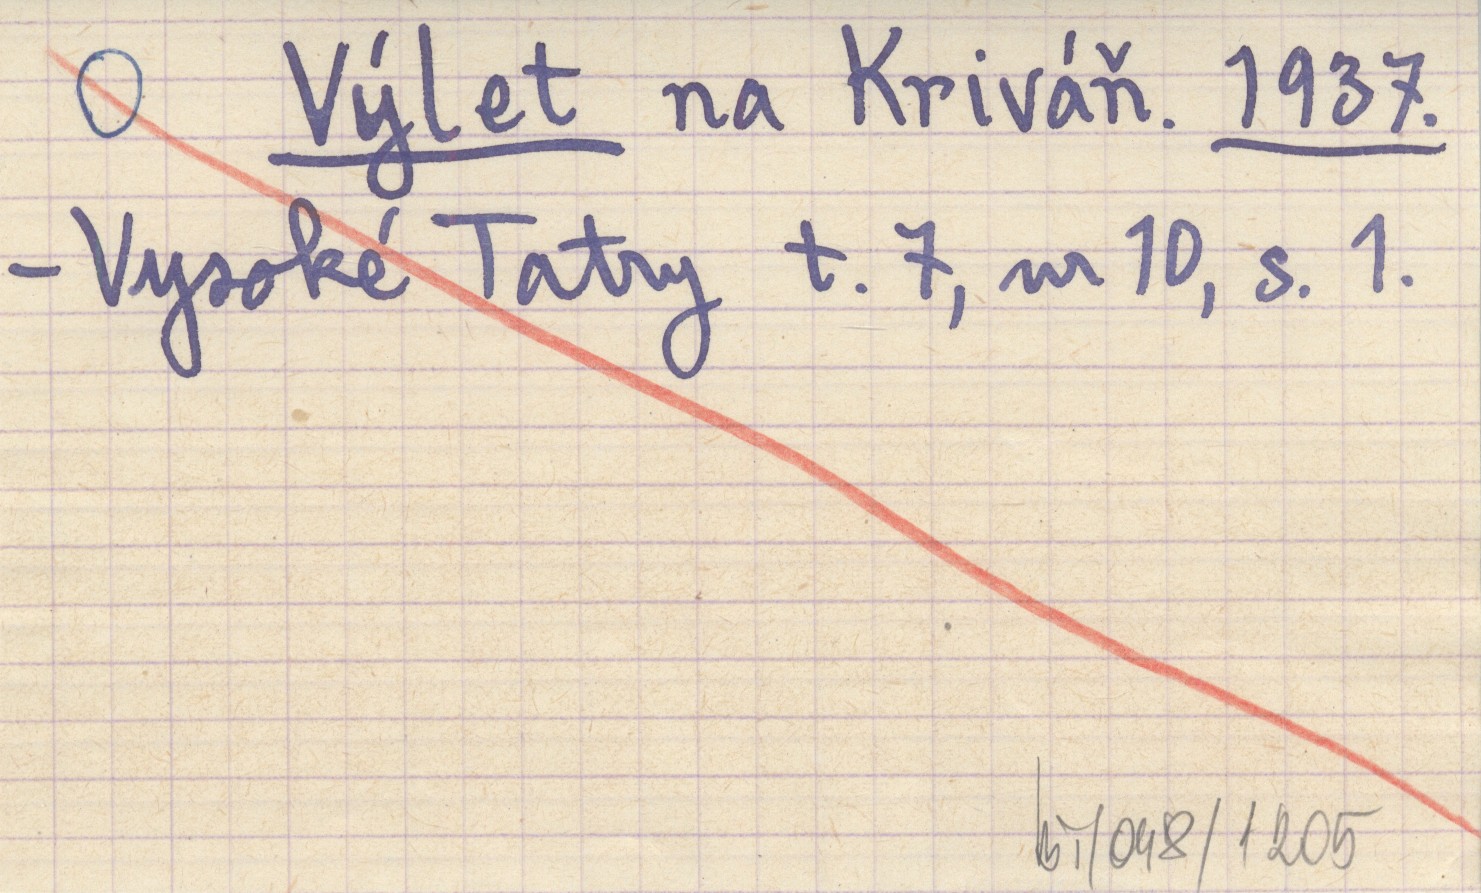 O Výlet na Kriváň. 1937.
- Vysoké Tatry t. 7, nr 10, s. 1.
/048/1205